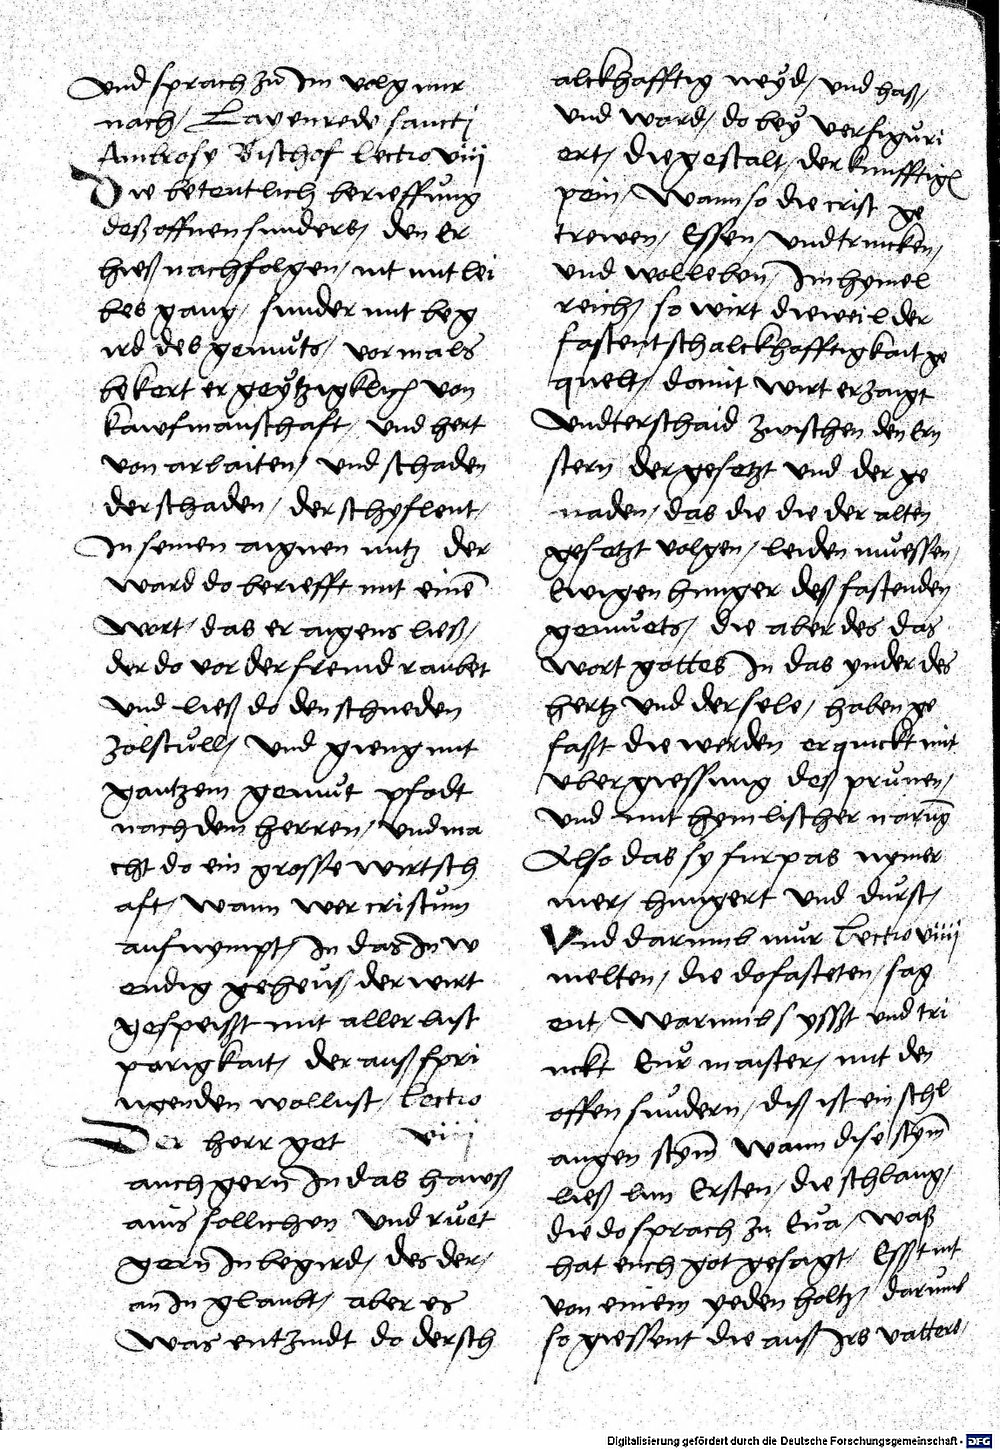 und sprach zu Im volg mir
nach / Lavenrede sancti
Ambrosy Bischof lectio viij
Die betentlich berieffung
deß offnen sunders / den Er
hieß nachfolgen / nit mit lei
bes gang / sunder mit beg
ird des gemuts / vormals
bekert er geytzigklich von
kawfmanschaft / und hert
von arbaiten / und schaden
der schaden / der schyflent /
In seinen aignen nutz der
ward do beriefft mit eine
wort / das er aigens ließ /
der do vor der fremd raubet
und ließ do den schneden
zolstull / und gieng mit
gantzem gemut pfodt
nach dem herren / und ma
cht do ein grosse wirtsch
aft / wann wer cristum
aufnympt / In das Inw
endig geheus / der wirt
gespeißt mit aller lust
parigkait / der auß spri
ngenden wollust / lectio
Der herr get viij
auch gern In das hawß
ains sollichen und ruet
gern In begird / des der /
an In glaubt / aber es
Was entzindt do der sch
alckhafftig neyd / und haß /
und ward / do bey verfiguri
ert / die gestalt / der kunfftig
pein / Wann so die crist ge
trewen / Essen / und trincken /
und wolleben / Im hymel
reich / so wirt dieweil der
fastent schalckhafftigkait ge
quelt / damit wirt erzaigt
undterschaid zwischen den Ern
stern der gesetzt und der ge
naden / das die die der alten
gesetzt volgen / leiden muessen /
Ewigen hunger deß fastenden
gemuets / die aber des das
wort gottes In das ynder des
hertz und der sele / haben ge
faßt die werden erquickt mit
ubergiessung deß prunen /
und mit hymlischer narug
Also das sy furpas nymer
mer / hungert und durst /
Und darumb mur lectio viiij
melten / die do fasteten / sag
ent / Warumb yßt und tri
nckt Eur maister / mit den
offen sundern / diß ist ein schl
angen stym wann dise stym
ließ Im Ersten / die schlang /
die do sprach zu Eva / waß
hat euch got gesagt / Esst nit
von einem yeden holtz / darumb
so giessent die auß Irs vatters /
Digitalisierung gefördert durch die Deutsche Forschungsgemeinschaft - DFG